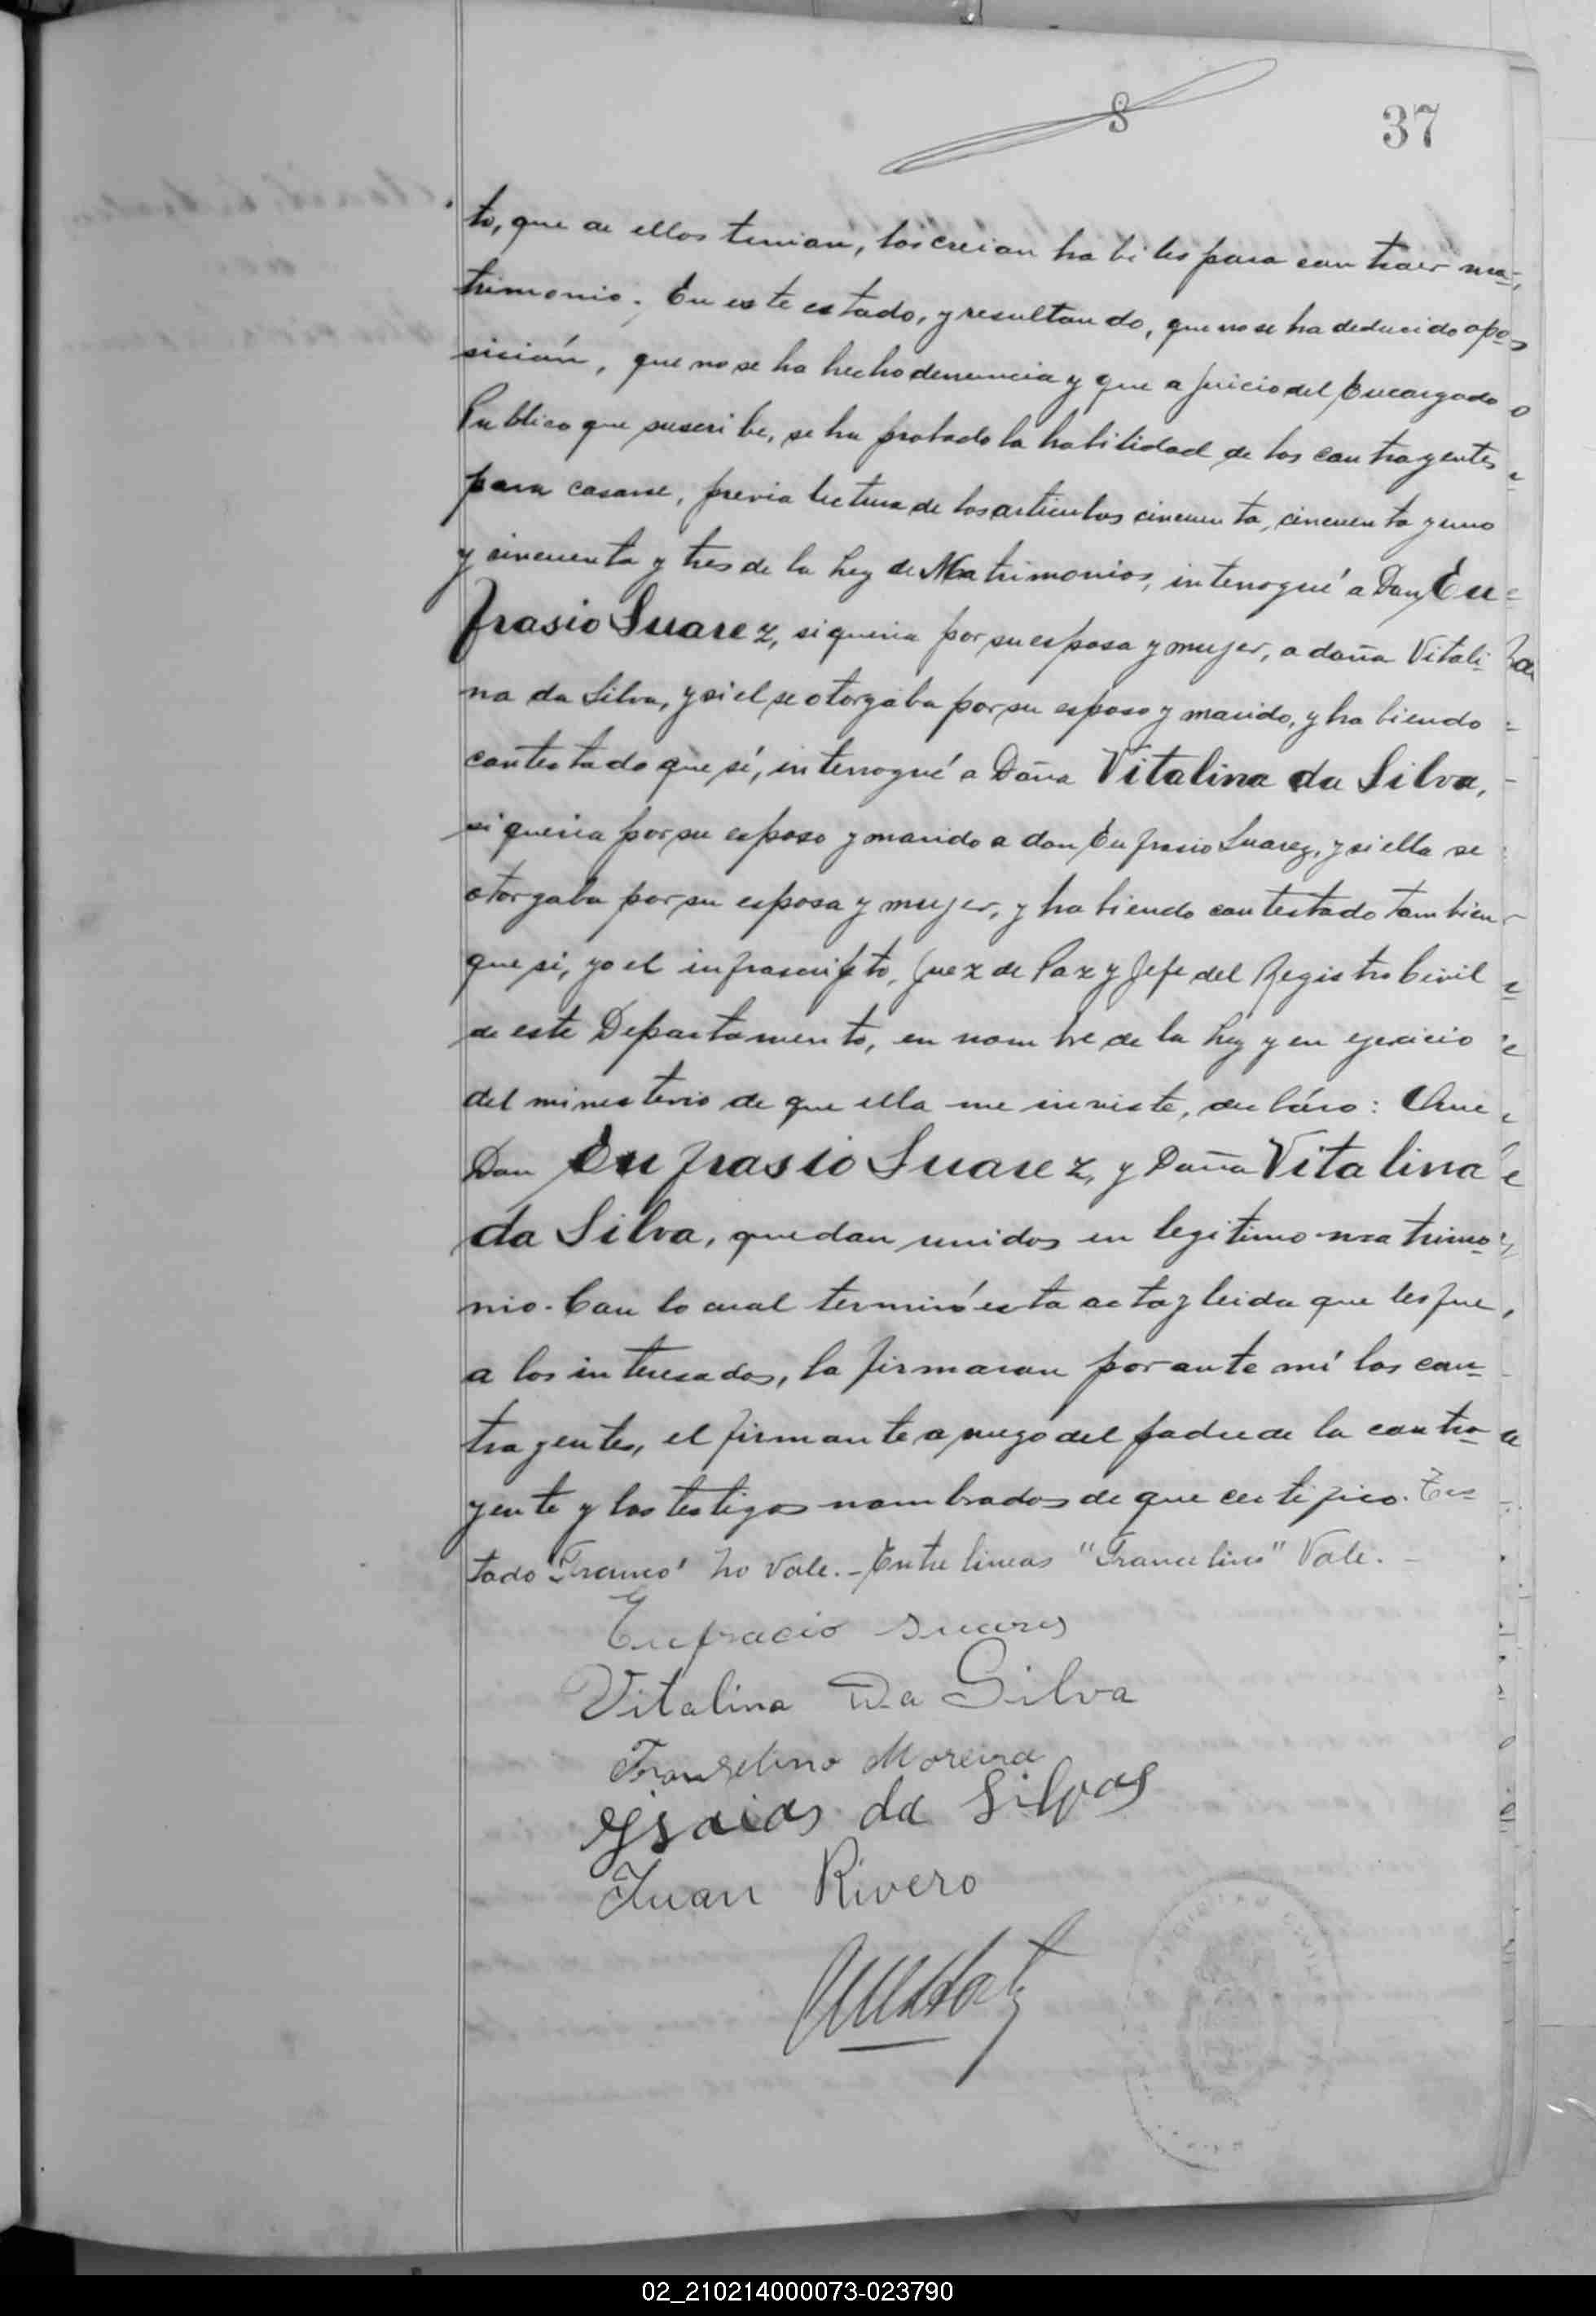 8
37
to, que de ellos tenian, los creian habiles para contraer ma-
trimonio. En este estado, y resultando, que no se ha deducido opo-
sición, que no se ha hecho denuncia y que a juicio del Encargado
Publico que suscribe, se ha probado la habilidad de los contrayentes
para casarse, previa lectura de los articulos cincuenta, cincuenta y uno
y cincuenta y tres de la Ley de Matrimonios, interrogué a Don Eu-
frasio Suarez, si queria por su esposa y mujer, a doña Vitali-
na da Silva, y si el se otorgaba por su esposo y marido, y habiendo
contestado que sí, interrogué a Doña Vitalina da Silva,
si queria por su esposo y marido a don Eufrasio Suarez, y si ella se
otorgaba por su esposa y mujer, y habiendo contestado tambien
que si, yo el infrascripto, Juez de Paz y Jefe del Registro Civil
de este Departamento, en nombre de la Ley y en ejercicio
del ministerio de que ella me inviste, declaro: Que
Don Eufrasio Suarez, y Doña Vitalina
da Silva, quedan unidos en legitimo matrimo-
nio. Con lo cual terminó esta acta y leida que les fue,
a los interesados, la firmaron por ante mí los con-
trayentes, el firmante a ruego del padre de la contra-
yente y los testigos nombrados de que certifico. Tes-
tado "Franco" no vale. - Entre lineas "Francelino" Vale. -
Eufracio Suares
Vitalina Da Silva
Franselino Moreira
Ysaias da Silvas
Juan Rivero
02_210214000073-023790